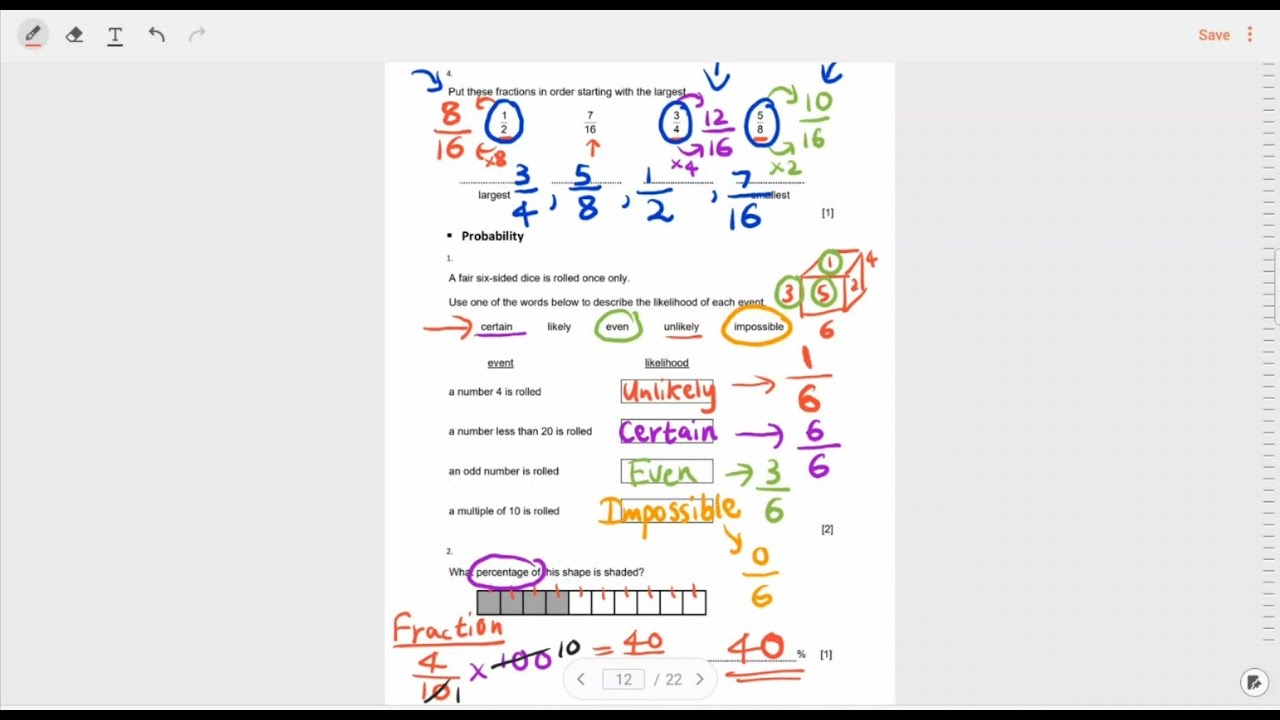 T Save
4.
Put these fractions in order starting with the largest
8/16 1/2 7/16 3/4 12/16 5/8 10/16
×8 ×4 ×2
3/4 , 5/8 , 1/2 , 7/16
largest smallest
[1]
▪ Probability
1.
A fair six-sided dice is rolled once only.
Use one of the words below to describe the likelihood of each event.
1 4 3 5 2 6
certain likely even unlikely impossible
event likelihood
a number 4 is rolled Unlikely → 1/6
a number less than 20 is rolled Certain → 6/6
an odd number is rolled Even → 3/6
a multiple of 10 is rolled Impossible → 0/6
[2]
2.
What percentage of this shape is shaded?
Fraction
4/10 1 × 100 10 = 40
40 % [1]
12 / 22